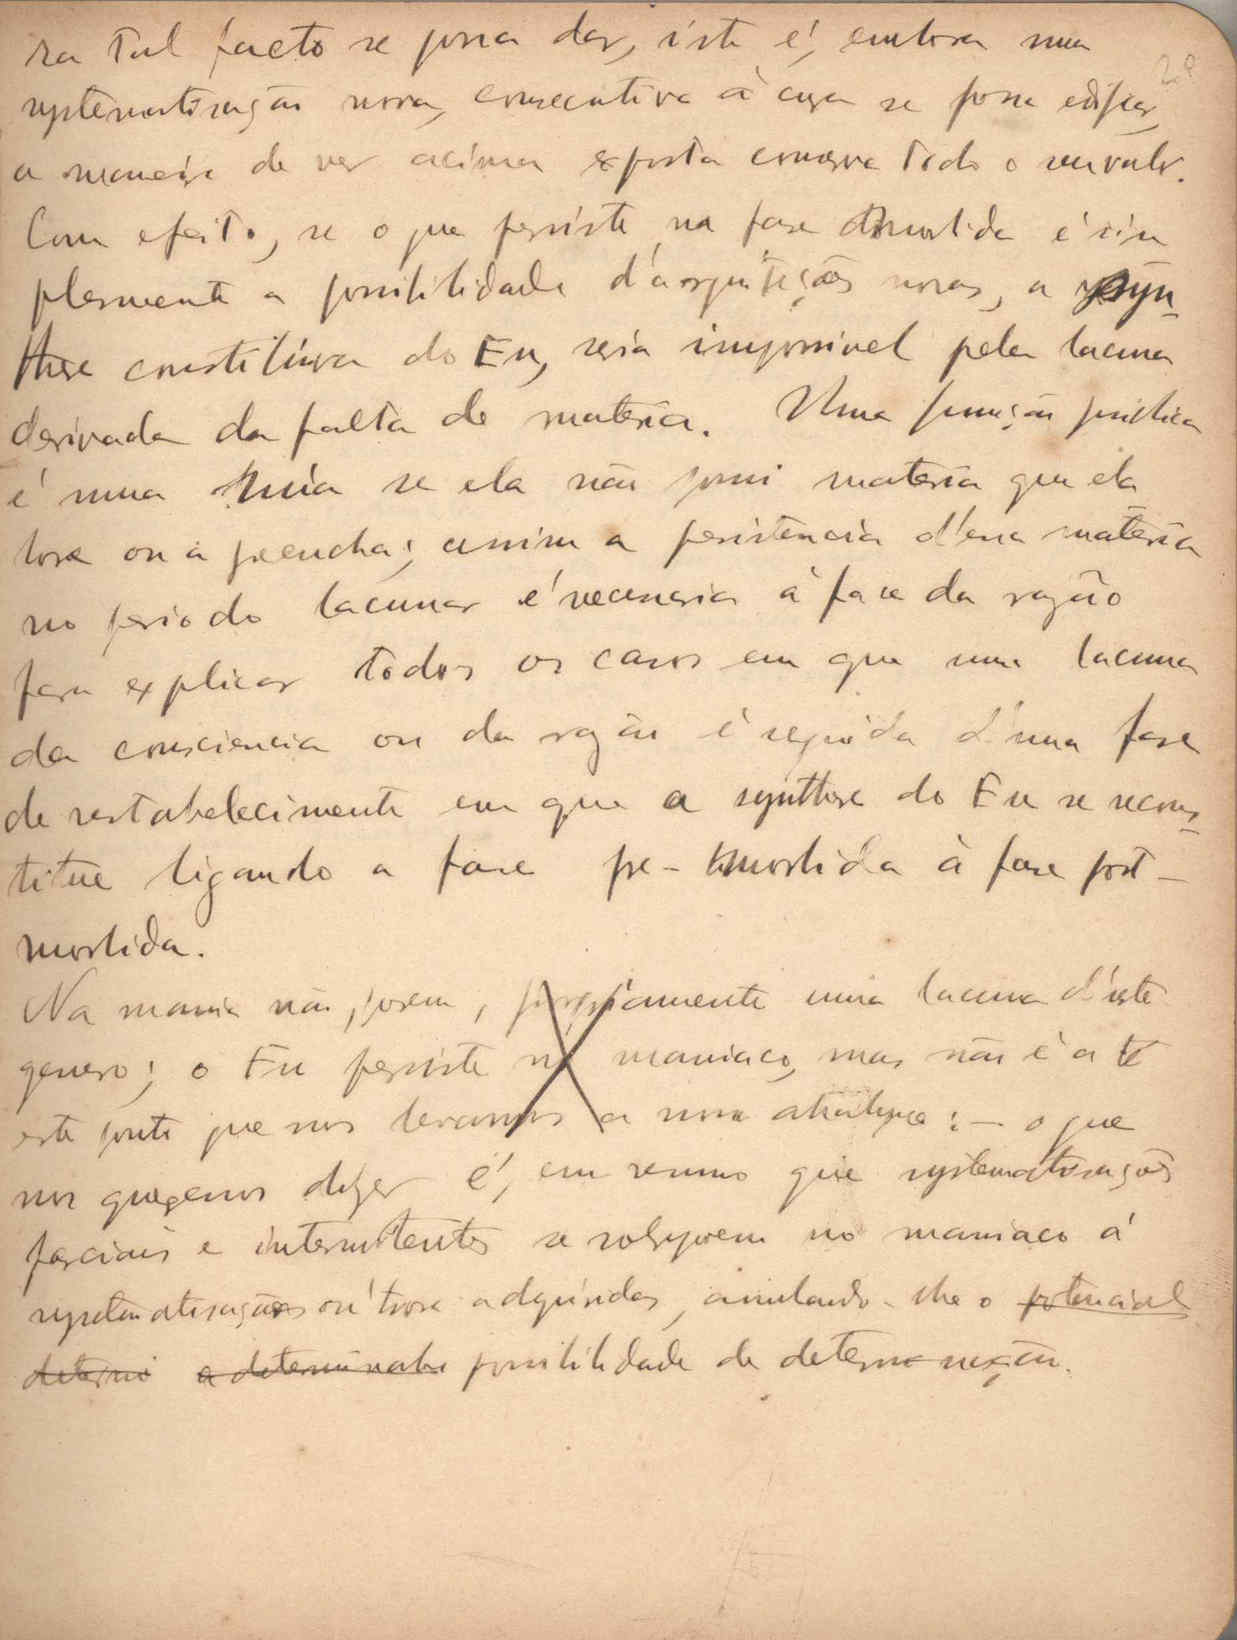 ra tal facto se possa dar, isto é, embora uma
systematisação nova, consecutiva à cura se possa edificar,
a maneira de ver acima exposta conserva todo o seu valor.
Com efeito, se o que persiste na fase morbida é sim
plesmente a possibilidade d'acquisições novas, a syn-
these constitutiva do Eu, seria impossivel pela lacuna
derivada da falta de materia. Uma funcção psychica
é uma se ela não possui materia que ela
bore ou a preencha; assim a persistencia d'essa materia
no periodo lacunar é necessaria à fase da razão
para explicar todos os casos em que uma lacuna
da consciencia ou da razão é seguida d'uma fase
de restabelecimento em que a synthese do Eu se recons-
titue ligando a fase pre-morbida à fase post-
morbida.
Na mania não, porem, propriamente uma lacuna d'este
genero; o Eu persiste no maniaco, mas não é a té
este ponto que nos levamos a nova : — o que
nos queremos dizer é, em resumo que systematisações
parciais e intermitentes se sobrepoem no maniaco á
systematisações outrora adquiridas, anulando-lhe o potencial
determi a determinada possibilidade de determinação.